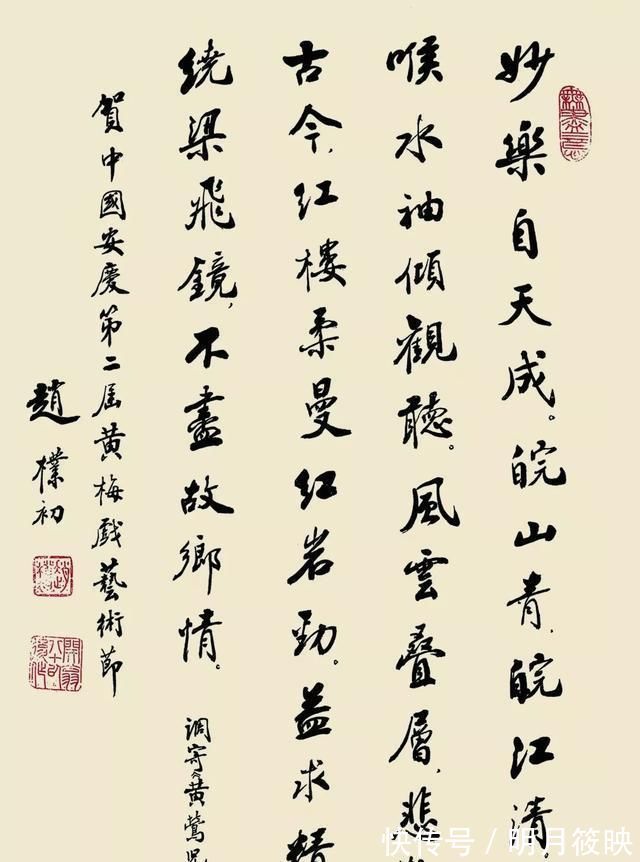 妙樂自天成。皖山青,皖江清。
喉水袖傾觀聽。風雲叠層,悲
古今,红樓柔曼红岩勁。益求精
绕梁飛鏡,不盡故鄉情。
調寄《黄鶯兒
賀中國安慶第二届黄梅戲藝術節
趙樸初
快传号 / 明月筱映